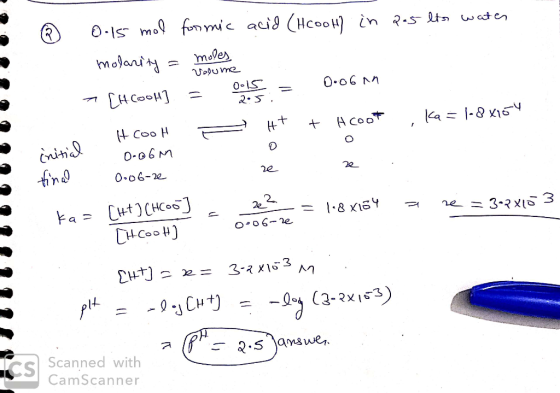 ② 0.15 mol formic acid (HCOOH) in 2.5 ltr water
molarity = moles / volume
→ [HCOOH] = 0.15 / 2.5 = 0.06 M
HCOOH ⇌ H+ + HCOO+ , Ka = 1.8 x 10-4
initial 0.06M 0 0
final 0.06-x x x
Ka = [H+][HCOO-] / [HCOOH] = x2 / 0.06-x = 1.8 x 10-4 ⇒ x = 3.2 x 10-3
[H+] = x = 3.2 x 10-3 M
pH = -log[H+] = -log (3.2 x 10-3)
⇒ pH = 2.5 answer.
CS Scanned with
CamScanner